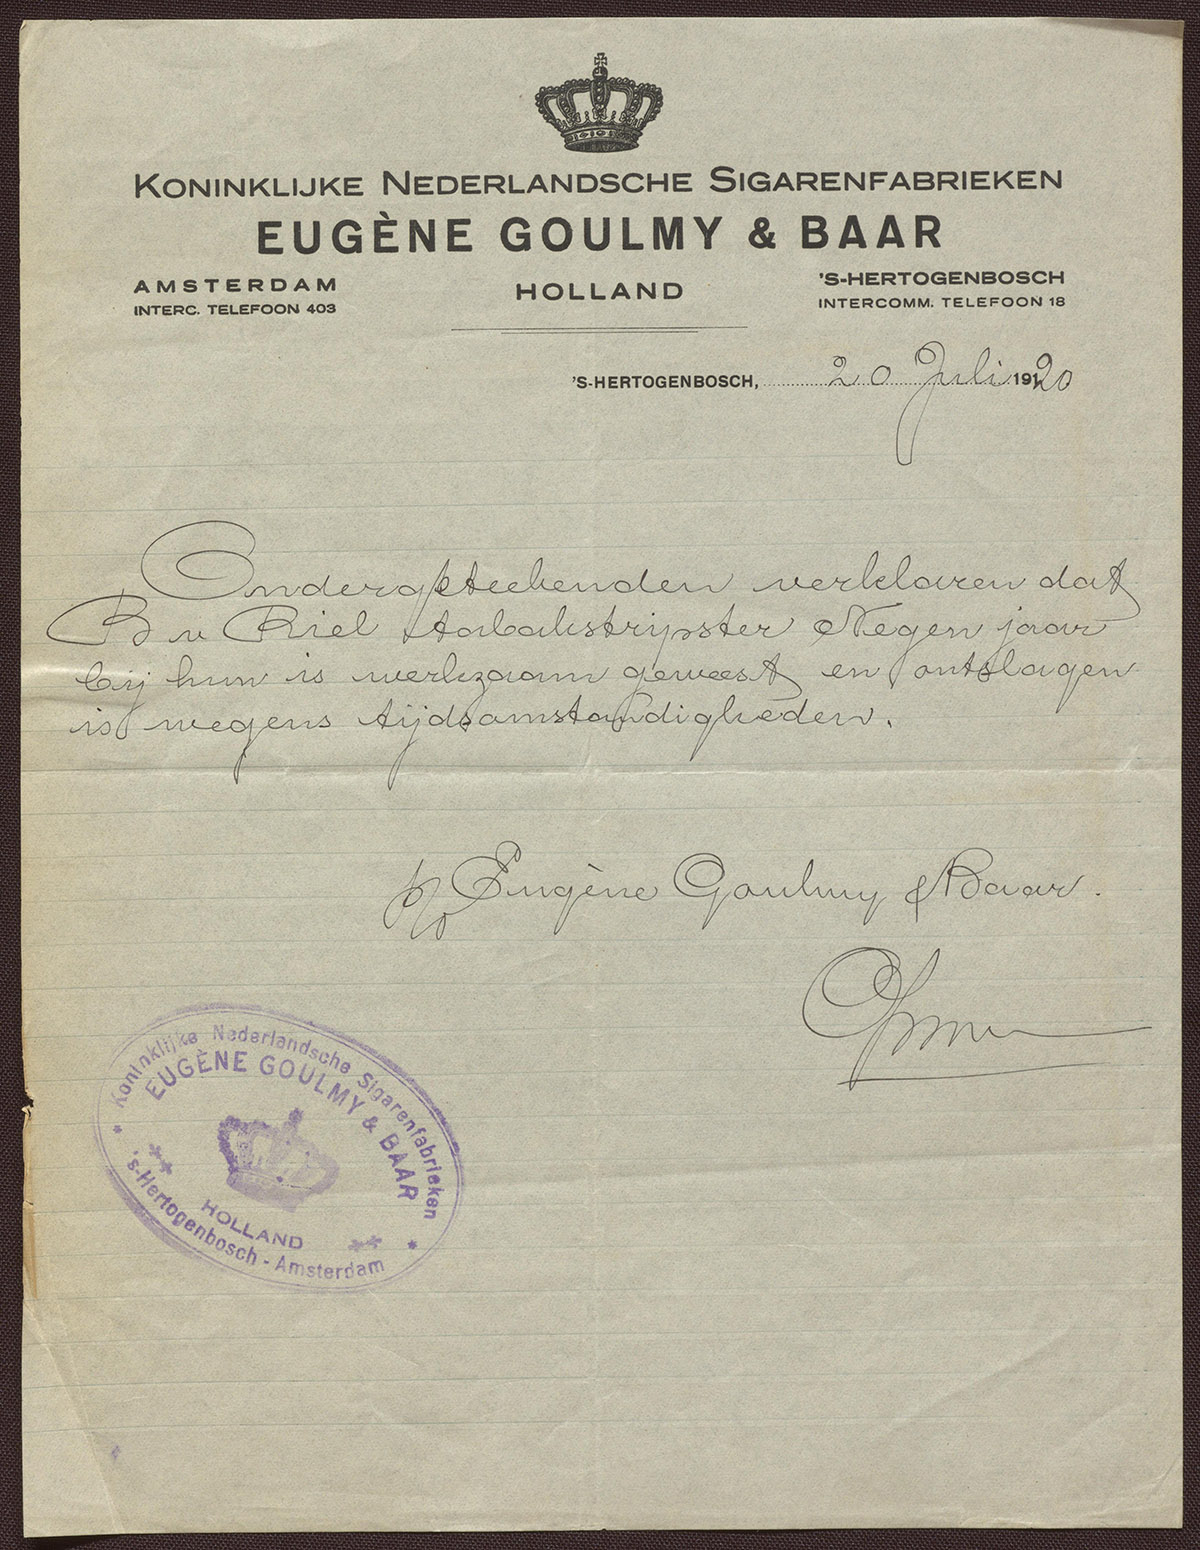 KONINKLIJKE NEDERLANDSCHE SIGARENFABRIEKEN
EUGÈNE GOULMY & BAAR
AMSTERDAM
INTERC. TELEFOON 403
HOLLAND
'S-HERTOGENBOSCH
INTERCOMM. TELEFOON 18
'S-HERTOGENBOSCH, 20 Juli 1920
Ondergeteekenden verklaren dat
B v Riel tabakstripster Negen jaar
bij hun is werkzaam geweest en ontslagen
is wegens tijdsomstandigheden.
p/o Eugène Goulmy & Baar.
Koninklijke Nederlandsche Sigarenfabrieken
EUGÈNE GOULMY & BAAR
HOLLAND
's-Hertogenbosch - Amsterdam